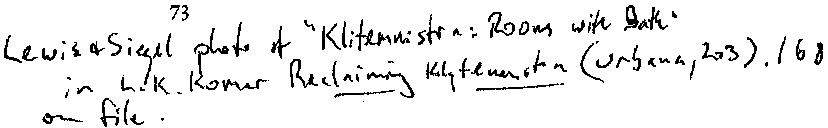 73
Lewis & Siegel photo of "Klitemnistra: Room with Bath"
in h.K. Komar Reclaiming Klytemnestra (Urbana, 2003). 168
on file.